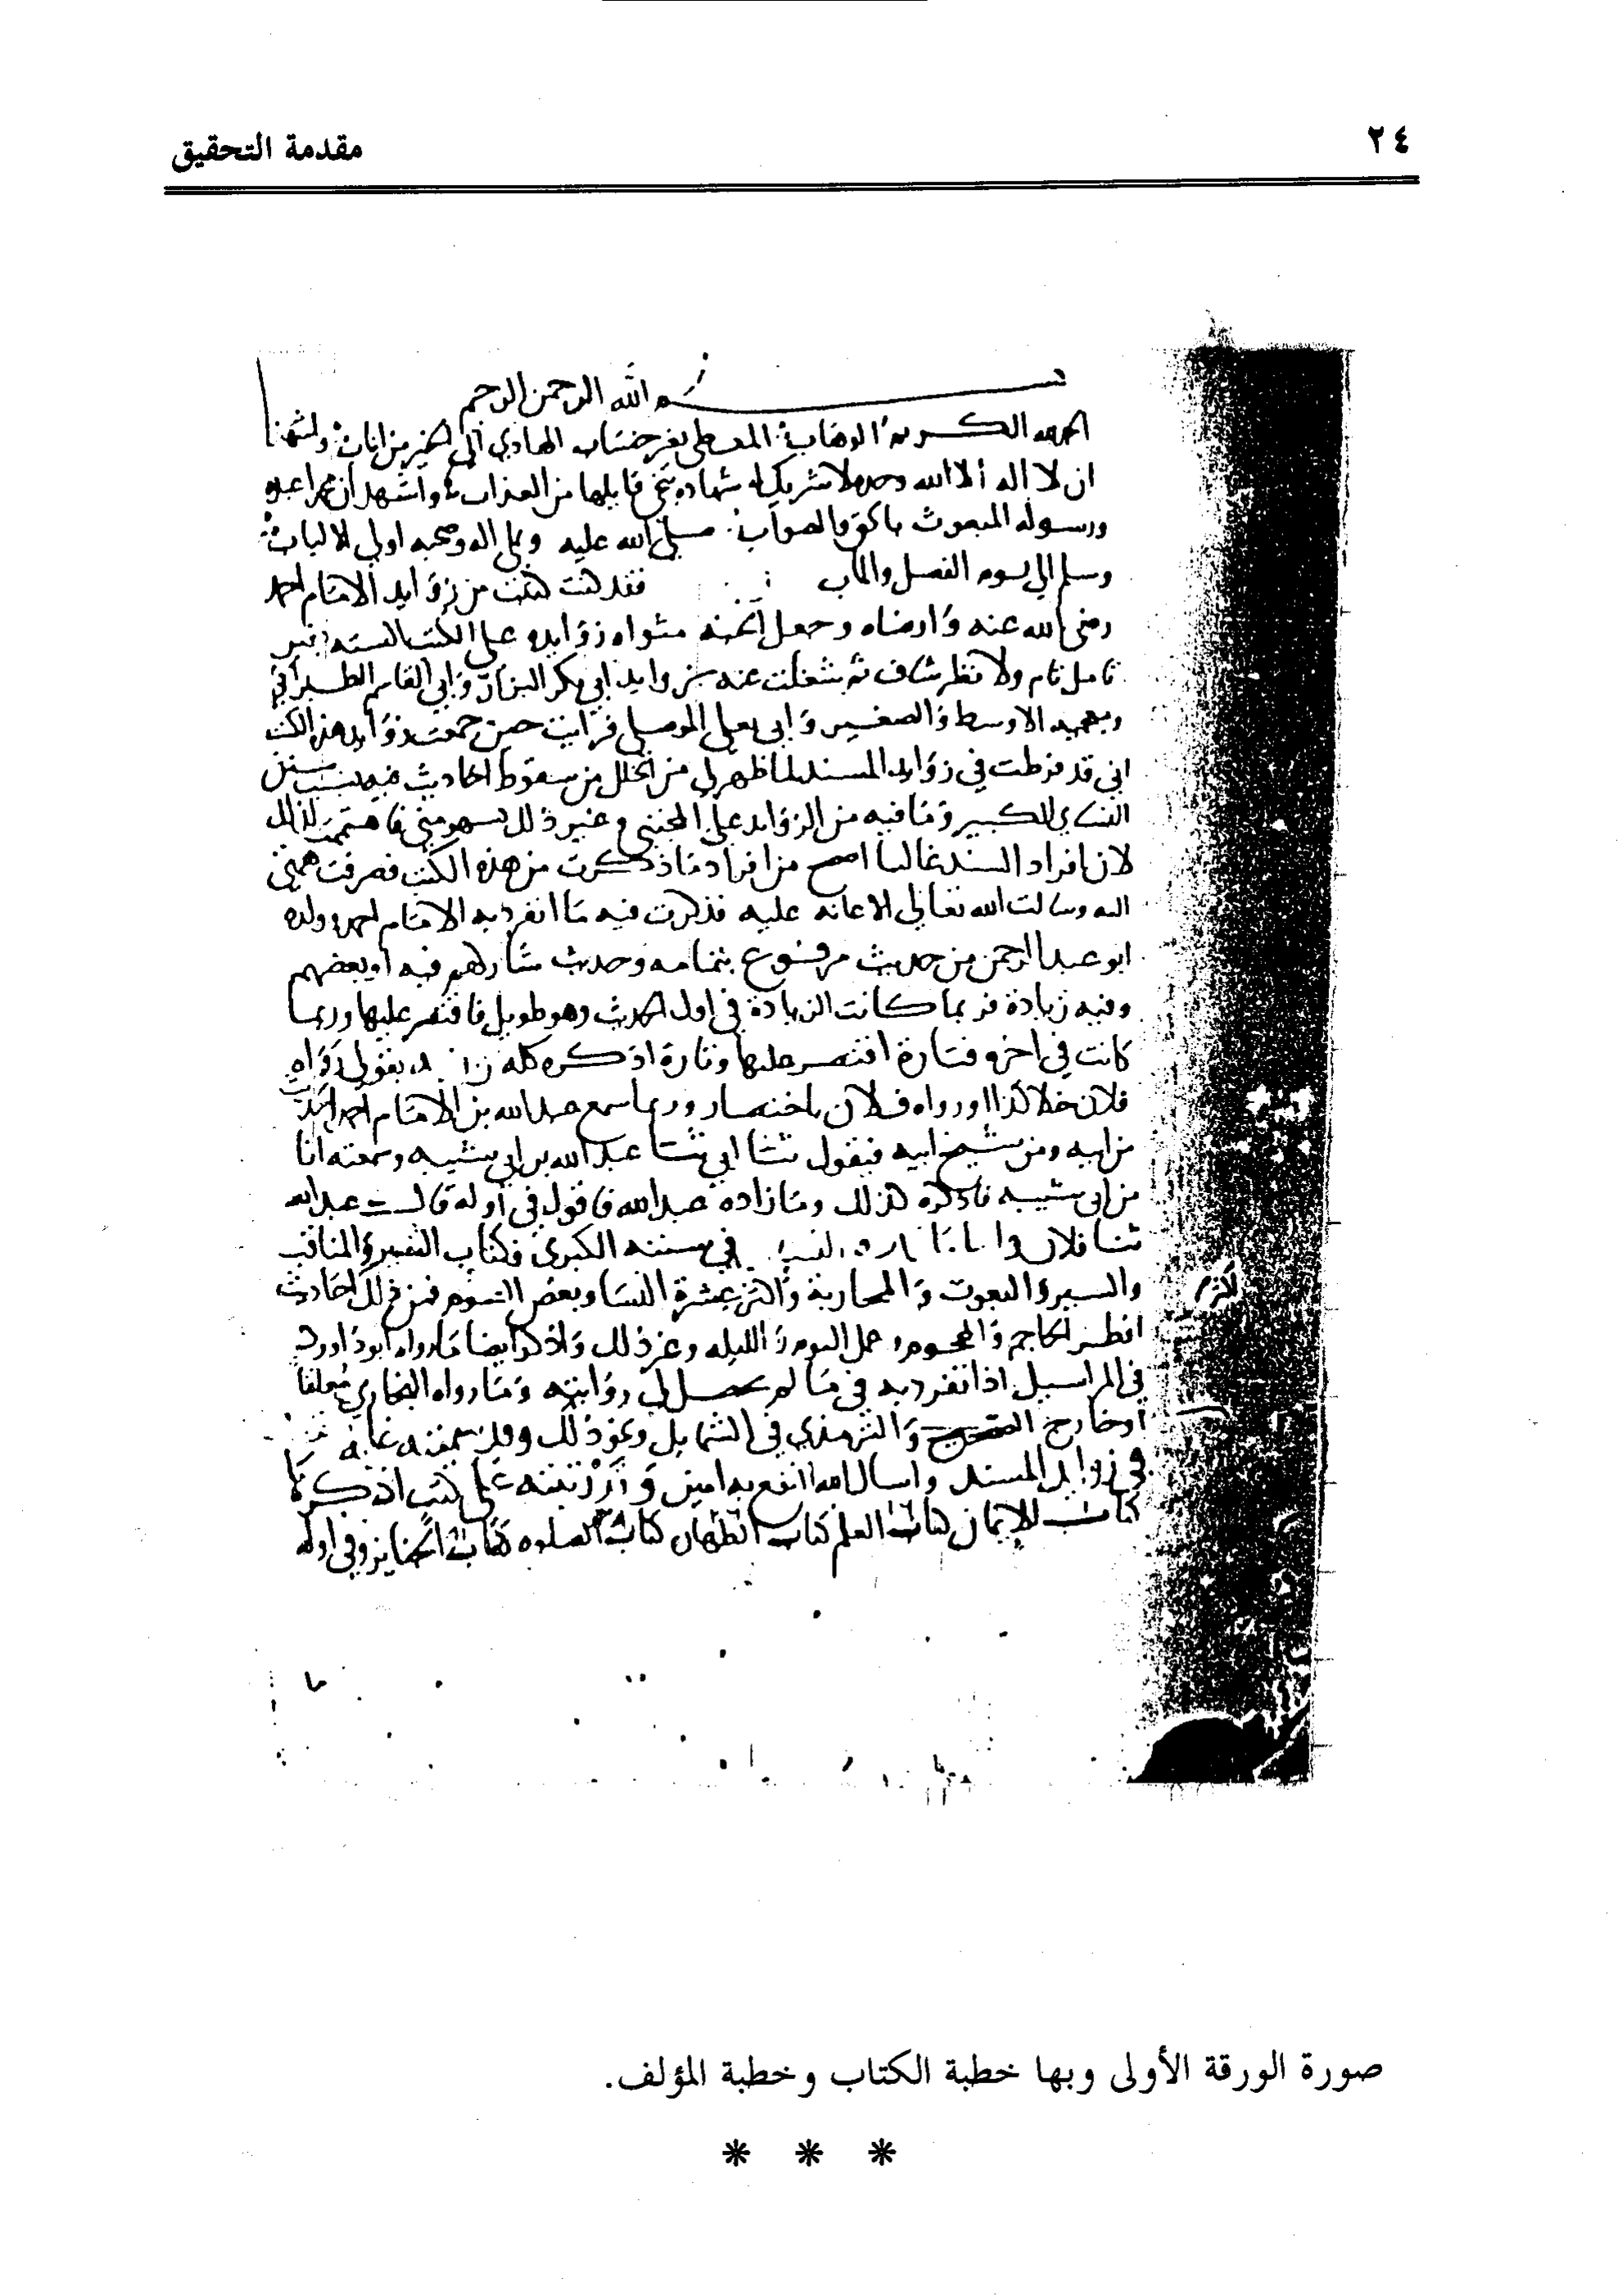 ٢٤
مقدمة التحقيق
بسم الله الرحمن الرحيم
الحمد لله الكريم الوهاب المعطي بغير حساب الهادي الى الخير من اناب واشهد
ان لا اله الا الله وحده لا شريك له شهادة تنجي قايلها من العذاب واشهد ان محمدا عبده
ورسوله المبعوث بالحق والصواب صلى الله عليه وعلى اله وصحبه اولي الالباب
وسلم الي يوم الفصل والماب فقد كنت كتبت من زوايد الامام احمد
رضي الله عنه وارضاه وجعل الجنه مثواه زوايده علي الكتب السته بغير
تامل تام ولا نظر شاف ثم شغلت عنه بزوايد ابي بكر البزار وابي القاسم الطبراني
ومعجميه الاوسط والصغير وابي يعلي الموصلي فرايت حين جمعت زوايد هذه الكتب
اني قد فرطت في زوايد المسند لما ظهر لي من الخلل من سقوط احاديث فيه بسبب سنن
النساي الكبير وما فيه من الزوايد علي المجتبي وغير ذلك بسهو مني فاهتممت لذلك
لان افراد المسند غالبا اصح من افراد ما ذكرت من هذه الكتب فصرفت همتي
اليه وسالت الله تعالي الاعانه عليه فذكرت فيه ما انفرد به الامام احمد وولده
ابو عبد الرحمن من حديث مرفوع بتمامه وحديث شاركهم فيه او بعضهم
وفيه زيادة فربما كانت الزيادة في اول الحديث وهو طويل فاقتصر عليها وربما
كانت في اخره فتارة اقتصر عليها وتارة اذكره كله بقولي رواه
فلان خلا كذا او رواه فلان باختصار وربما سمع عبد الله بن الامام احمد الحديث
من ابيه ومن شيخ ابيه فيقول ثنا ابي ثنا عبد الله بن ابي شيبه وسمعته انا
من ابي شيبه فاذكره كذلك وما زاده عبد الله فاقول في اوله قال عبد الله
ثنا فلان في سننه الكبري فكتاب التفسير والمناقب
والسير والنعوت والمحاربة واكثر عشرة النسا وبعض الصوم فمن ذلك احاديث
افطر الحاجم والمحجوم وعمل اليوم والليله وغير ذلك واذكر ايضا ما رواه ابو داود
في المراسيل اذا انفرد به في ما لم يحصل لي روايته وما رواه البخاري معلقا
او خارج والترمذي في الشمايل ونحو ذلك وقد سميته غاية
في زوايد المسند واسال الله النفع به امين ورتبته علي كتب اذكرها
كتاب الايمان كتاب العلم كتاب الطهاره كتاب الصلوه كتاب الجنايز وفي اوله
صورة الورقة الأولى وبها خطبة الكتاب وخطبة المؤلف.
* * *